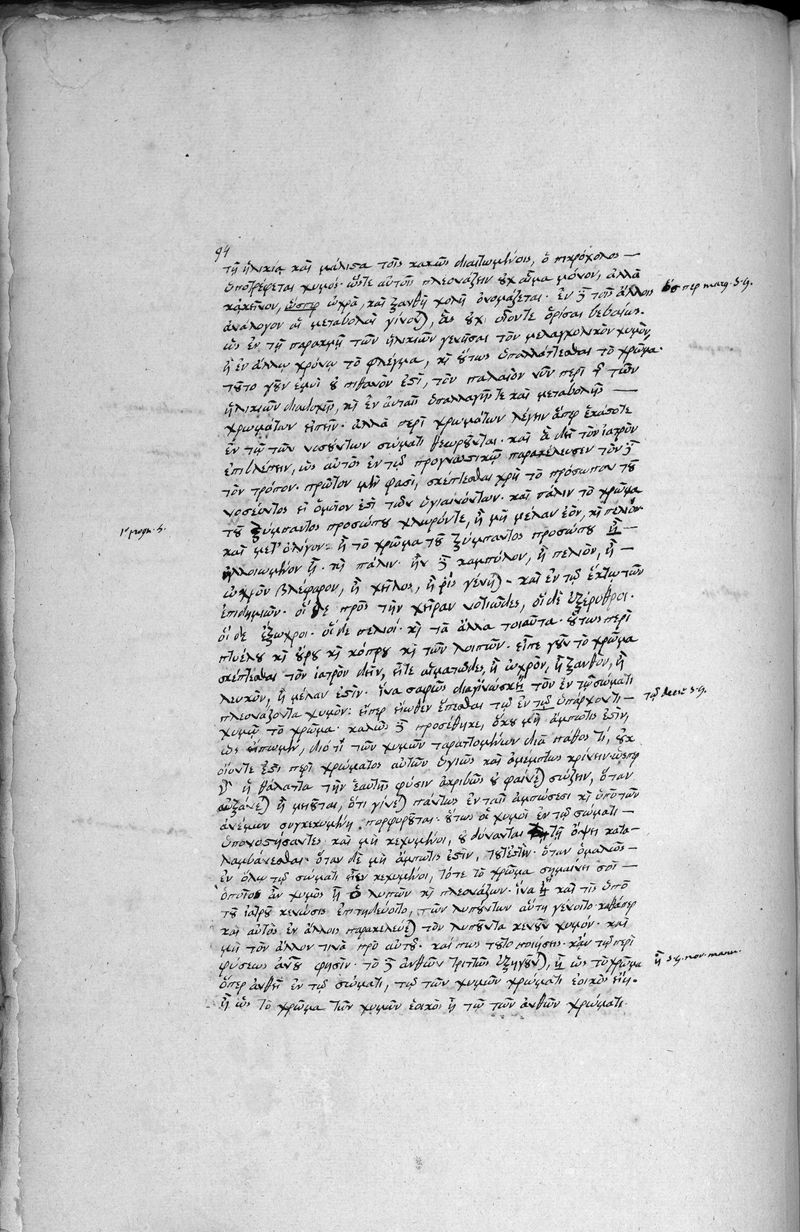 94
τῇ ἡλικίᾳ καὶ μάλιστα τοῖς κακῶς διαιτωμένοις, ὁ πικρόχολος —
ὑποτρέφεται χυμός· ὥστε αὐτοῖς πλεονάζειν οὐχ αἷμα μόνον, ἀλλὰ
κἀκεῖνον, ὥσπερ ὠχρὰ, καὶ ξανθὴ χολὴ ὀνομάζεται. ἐν δὲ τοῖς ἄλλοις
ἀνάλογον αἱ μεταβολαὶ γίνονται, ἃς οὐχὶ οἷόντε ὁρίσαι βεβαίως.
ὡς ἐν τῇ παρακμῇ τῶν ἡλικιῶν γενέσθαι τὸν μελαγχολικὸν χυμὸν,
ἢ ἐν ἄλλῳ χρόνῳ τὸ φλέγμα, καὶ οὕτως ὑπαλλάττεσθαι τὸ χρῶμα.
τοῦτο γοῦν ἐμοὶ οὐ πιθανόν ἐστι, τὸν παλαιὸν νῦν περὶ τῆς τῶν
ἡλικιῶν διαδοχῆς, καὶ ἐν αὐταῖς ὑπαλλαγῆς τε καὶ μεταβολῆς —
χρωμάτων εἰπεῖν· ἀλλὰ περὶ χρωμάτων λέγειν ἅπερ ἑκάστοτε
ἐν τῷ τῶν νοσούντων σώματι θεωροῦνται. καὶ ἃ δεῖ τὸν ἰατρὸν
ἐπιβλέπειν, ὡς αὐτὸς ἐν τῷ προγνωστικῷ παρακέλευσεν τόνδε
τὸν τρόπον. πρῶτον μὲν φασὶ, σκέπτεσθαι χρὴ τὸ πρόσωπον τοῦ
νοσέοντος εἰ ὅμοιον ἐστὶ τῶν ὑγιαινόντων. καὶ πάλιν τὸ χρῶμα
τοῦ ξύμπαντος προσώπου χλωρόντε, ἢ μὴ μέλαν ἐὸν, καὶ πελιόν·
καὶ μετ' ὀλίγον· ἢ τὸ χρῶμα τοῦ ξύμπαντος προσώπου ᾖ —
ἠλλοιωμένον ᾖ. καὶ πάλιν· ἢν δὲ καμπύλον, ἢ πελιὸν, ἢ —
ὠχρὸν βλέφαρον, ἢ χεῖλος, ἢ ῥὶς γένηται· καὶ ἐν τῷ ἕκτῳ τῶν
ἐπιδημιῶν. οἱ δὲ πρὸς τὴν χεῖραν νοτιώδεις, οἱ δὲ ἐξέρυθροι.
οἱ δὲ ἔξωχροι. οἱ δὲ πελιοί. καὶ τὰ ἄλλα τοιαῦτα. οὕτως περὶ
πτυέλου καὶ οὔρου καὶ κόπρου καὶ τῶν λοιπῶν. εἶπε γοῦν τὸ χρῶμα
σκέπτεσθαι τὸν ἰατρὸν δεῖν, εἴτε αἱματῶδες, ἢ ὠχρὸν, ἢ ξανθὸν, ἢ
λευκὸν, ἢ μέλαν ἐστὶν. ἵνα σαφῶς διαγινώσκῃ τὸν ἐν τῷ σώματι
πλεονάζοντα χυμὸν· εἴπερ εἴωθεν ἕπεσθαι τῷ ἐν τῷ ὑπάρχοντι —
χυμῷ τὸ χρῶμα. καλῶς δὲ προσέθηκε, ὅκου μὴ ἄμπωτις ἐστὶν,
ὡς εἴπωμεν, διότι τῶν χυμῶν ταραττομένων διὰ πάθος τὶ, οὐχ
οἷόντε ἐστὶ περὶ χρώματος αὐτῶν ὑγιῶς καὶ ἀμέμπτως κρίνειν ὥσπερ
ἢ θάλαττα τὴν ἑαυτῆς φύσιν ἀκριβῶς οὐ φαίνεται σώζειν, ὅταν
αὐξάνεται ἢ μειοῦται, ὅτι γίνεται πάντως ἐν ταῖς ἀμπώσεσι καὶ ὑπὸ τῶν
ἀνέμων συγκεχυμένη πορφυροῦται. οὕτως οἱ χυμοὶ ἐν τῷ σώματι —
ὑπονοστήσαντες, καὶ μὴ κεχυμένοι, οὐ δύνανται τῇ ὄψει κατα-
λαμβάνεσθαι. ὅταν δὲ μὴ ἄμπωτις ἐστὶν, τουτέστιν· ὅταν ὁμαλῶς —
ἐν ὅλῳ τῷ σώματι εἶεν κεχυμένοι, τότε τὸ χρῶμα σημαίνει σοὶ —
ὁποῖος ἂν χυμὸς ᾖ ὁ λυπῶν καὶ πλεονάζων. ἵνα ᾖ καὶ τῆς ὑπὸ
τοῦ ἰατροῦ κενώσις ἐπιτηδεύοιτο, τῶν λυπούντων αὕτη γένοιτο καθάπερ
καὶ αὐτὸς ἐν ἄλλοις παρακελεύεται τὸν λυποῦντα κενοῦν χυμόν. καὶ
μὴ τὸν ἄλλον τινὰ πρὸ αὐτοῦ. καί πως τοῦτο ποιήσεις. κἂν τῷ περὶ
φύσεως ἀνθρώπου φησὶν. τὸ δὲ ἀνθῶν τριττῶς ἐξηγοῦνται, ᾖ ὡς τὸ χρῶμα
ὅπερ ἀνθεῖ ἐν τῷ σώματι, τῷ τῶν χυμῶν χρώματι ἐοικὸς εἴη.
ἢ ὡς τὸ χρῶμα τῶν χυμῶν ἐοικὸς ᾖ τῷ τῶν ἀνθῶν χρώματι.